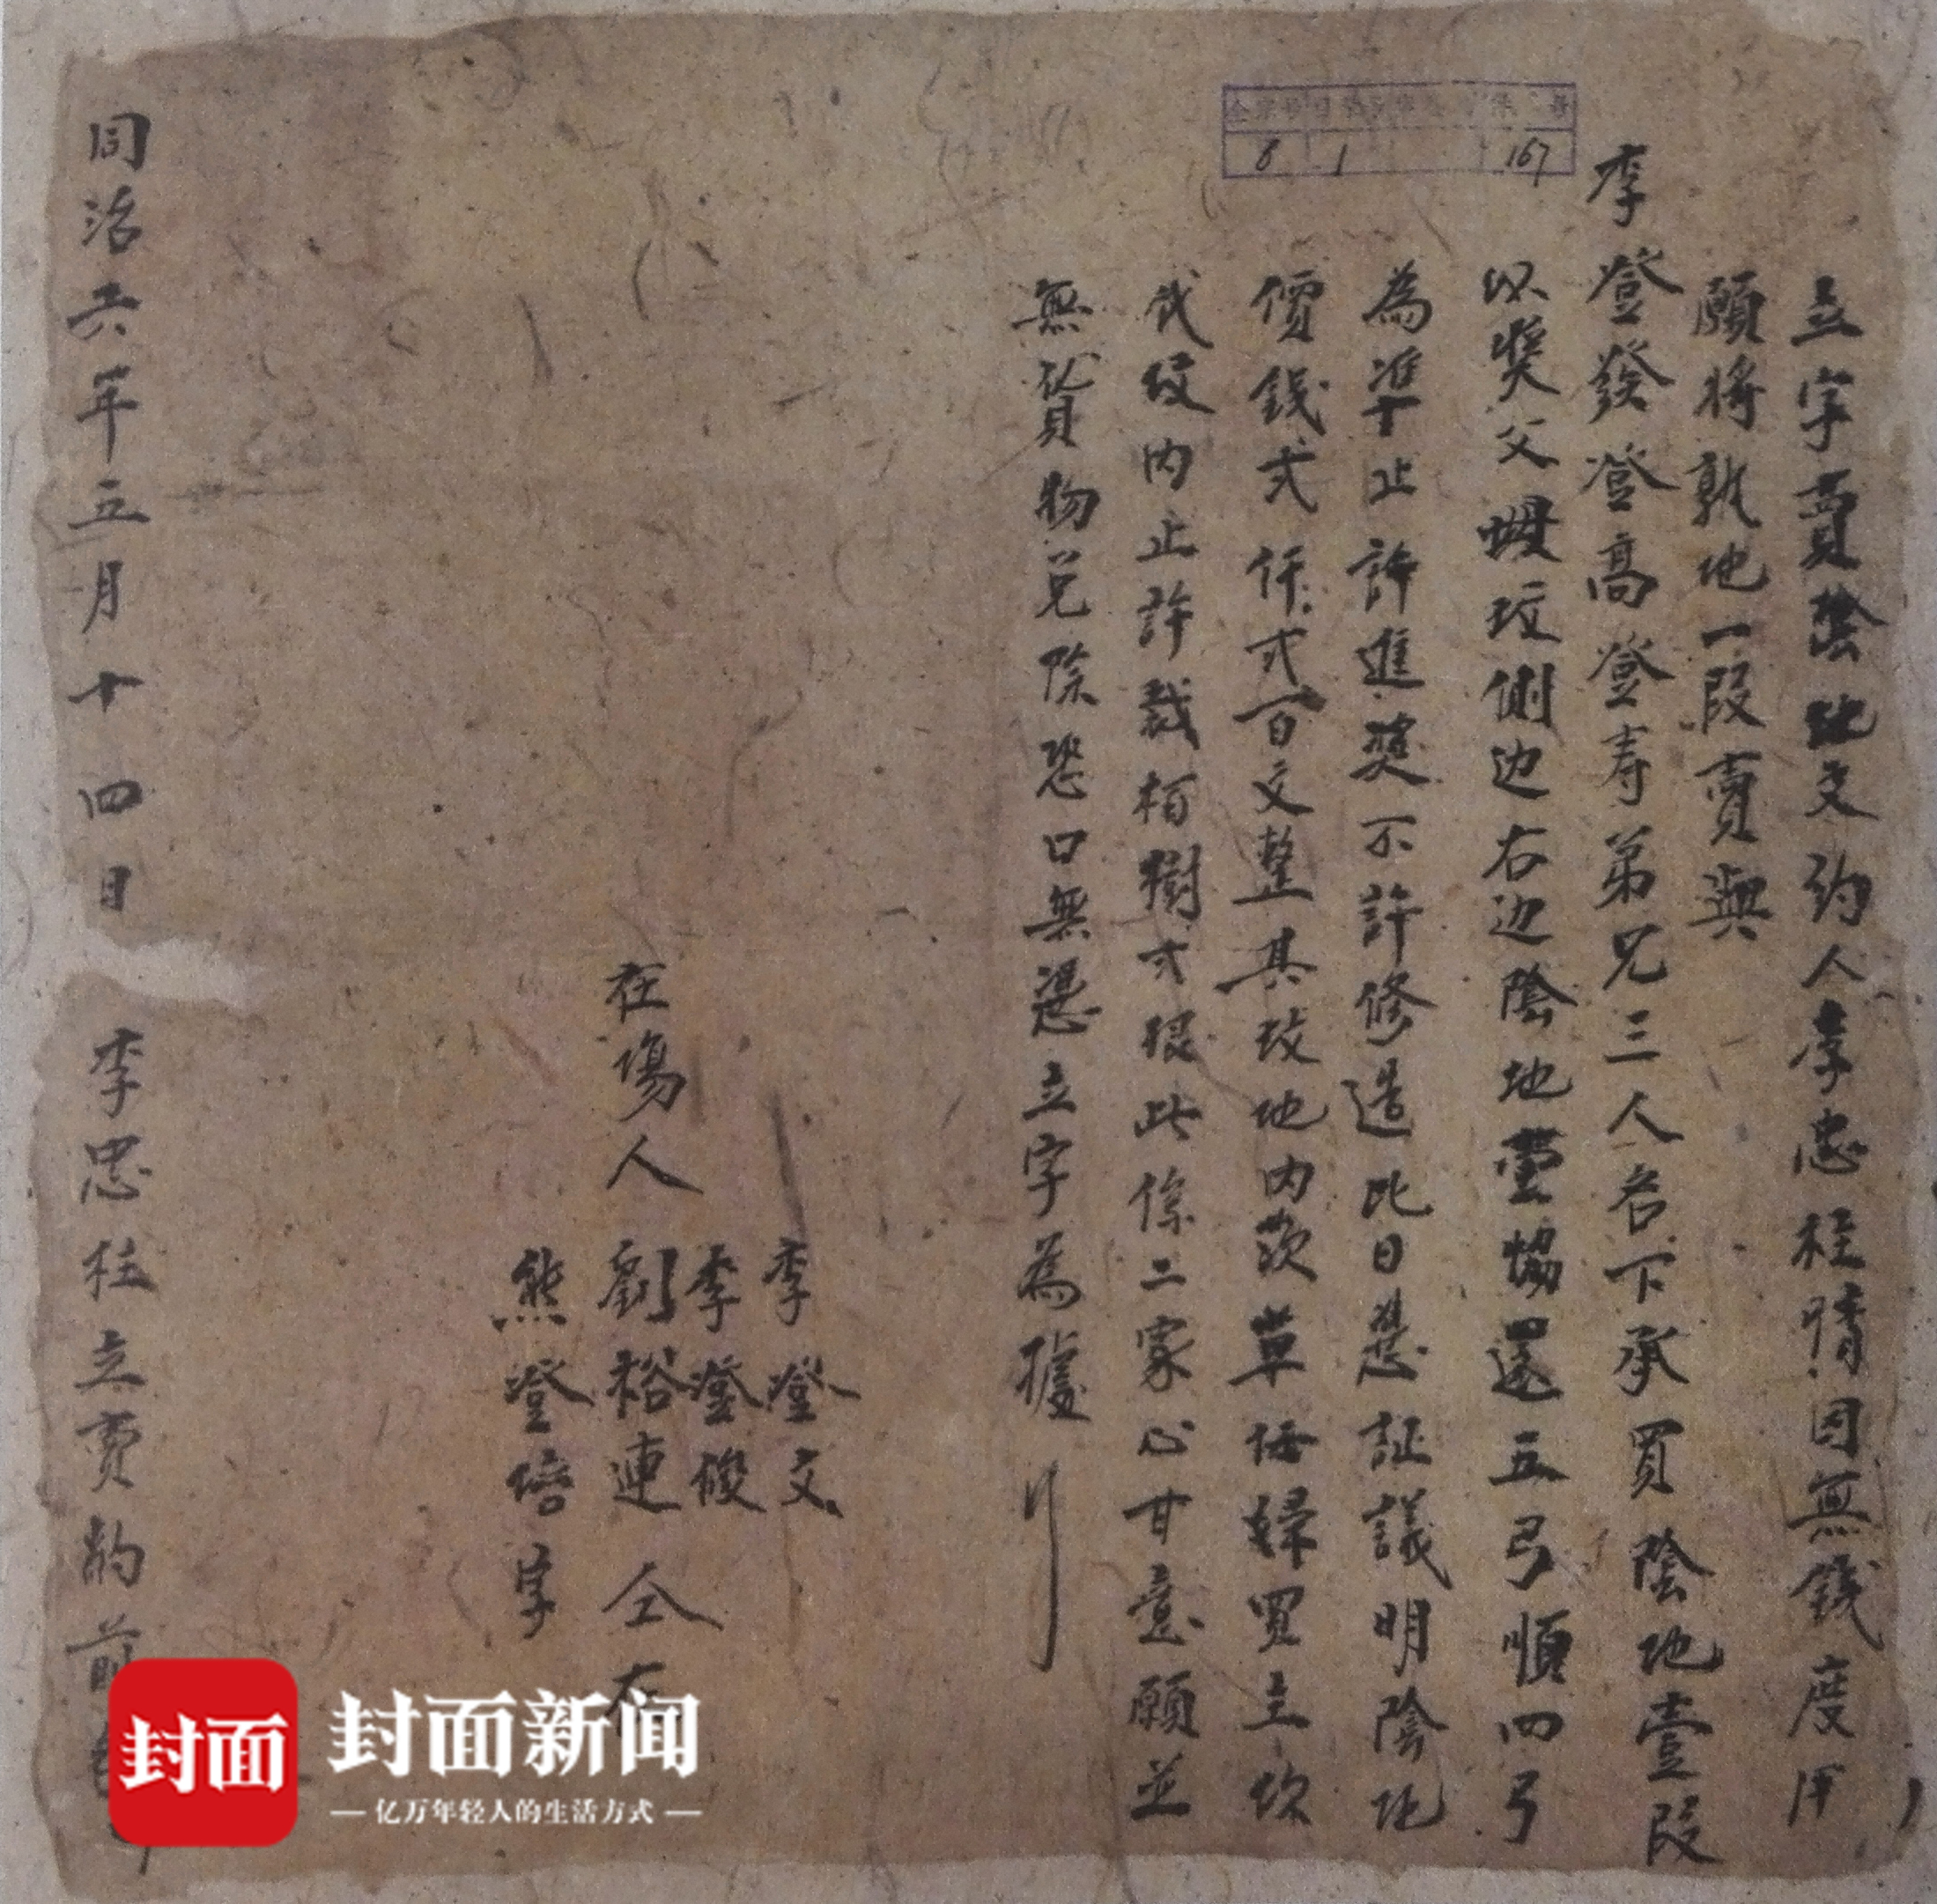 立字賣陰地文約人李忠柱情因無錢度用
願將熟地一段賣與
李登發登高登壽弟兄三人名下承買陰地壹段
以奬父母坟側边右边陰地壹協還五弓順四弓
為準止許進奬不許修造比日憑証議明陰地
價錢弍仟弍百文整其坟地内茨草任婦買主坎
伐坟内止許栽栢樹才根此係二家心甘意願並
無貨物兑除恐口無憑立字為據
李登文
李登俊
在塲人劉裕連仝在
熊登培字
同治六年五月十四日 李忠柱立賣約前
8 1 167
封面
封面新闻
亿万年轻人的生活方式